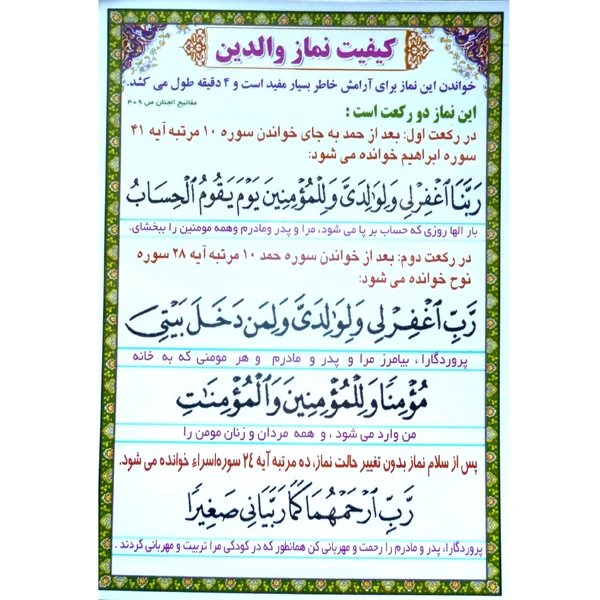 کیفیت نماز والدین
خواندن این نماز برای آرامش خاطر بسیار مفید است و ۴ دقیقه طول می کشد.
مفاتیح الجنان ص ۴۰۹
این نماز دو رکعت است :
در رکعت اول: بعد از حمد به جای خواندن سوره ۱۰ مرتبه آیه ۴۱
سوره ابراهیم خوانده می شود:
رَبَّنَا ٱغْفِرْ لِی وَلِوَٰلِدَیَّ وَلِلْمُؤْمِنِینَ یَوْمَ یَقُومُ ٱلْحِسَابُ
بار الها روزی که حساب بر پا می شود، مرا و پدر ومادرم وهمه مومنین را ببخشای.
در رکعت دوم: بعد از خواندن سوره حمد ۱۰ مرتبه آیه ۲۸ سوره
نوح خوانده می شود:
رَّبِّ ٱغْفِرْ لِی وَلِوَٰلِدَیَّ وَلِمَن دَخَلَ بَیْتِیَ
پروردگارا، بیامرز مرا و پدر و مادرم و هر مومنی که به خانه
مُؤْمِنًا وَلِلْمُؤْمِنِینَ وَٱلْمُؤْمِنَٰتِ
من وارد می شود ، و همه مردان و زنان مومن را
پس از سلام نماز بدون تغییر حالت نماز، ده مرتبه آیه ۲۴ سوره اسراء خوانده می شود.
رَّبِّ ٱرْحَمْهُمَا کَمَا رَبَّیَانِی صَغِیرًا
پروردگارا، پدر و مادرم را رحمت و مهربانی کن همانطور که در کودکی مرا تربیت و مهربانی کردند .